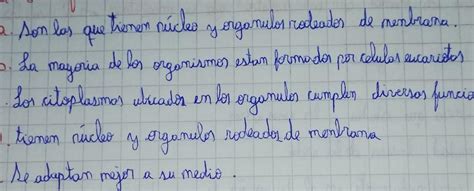 a. Son las que tienen núcleo y organulos rodeados de membrana.
b. La mayoria de los organismos estan formados por celulas eucariotas
. Los citoplasmas ubicados en los organulos cumplen diversas funcio
. tienen núcleo y organulos rodeados de membrana
. Se adaptan mejor a su medio.